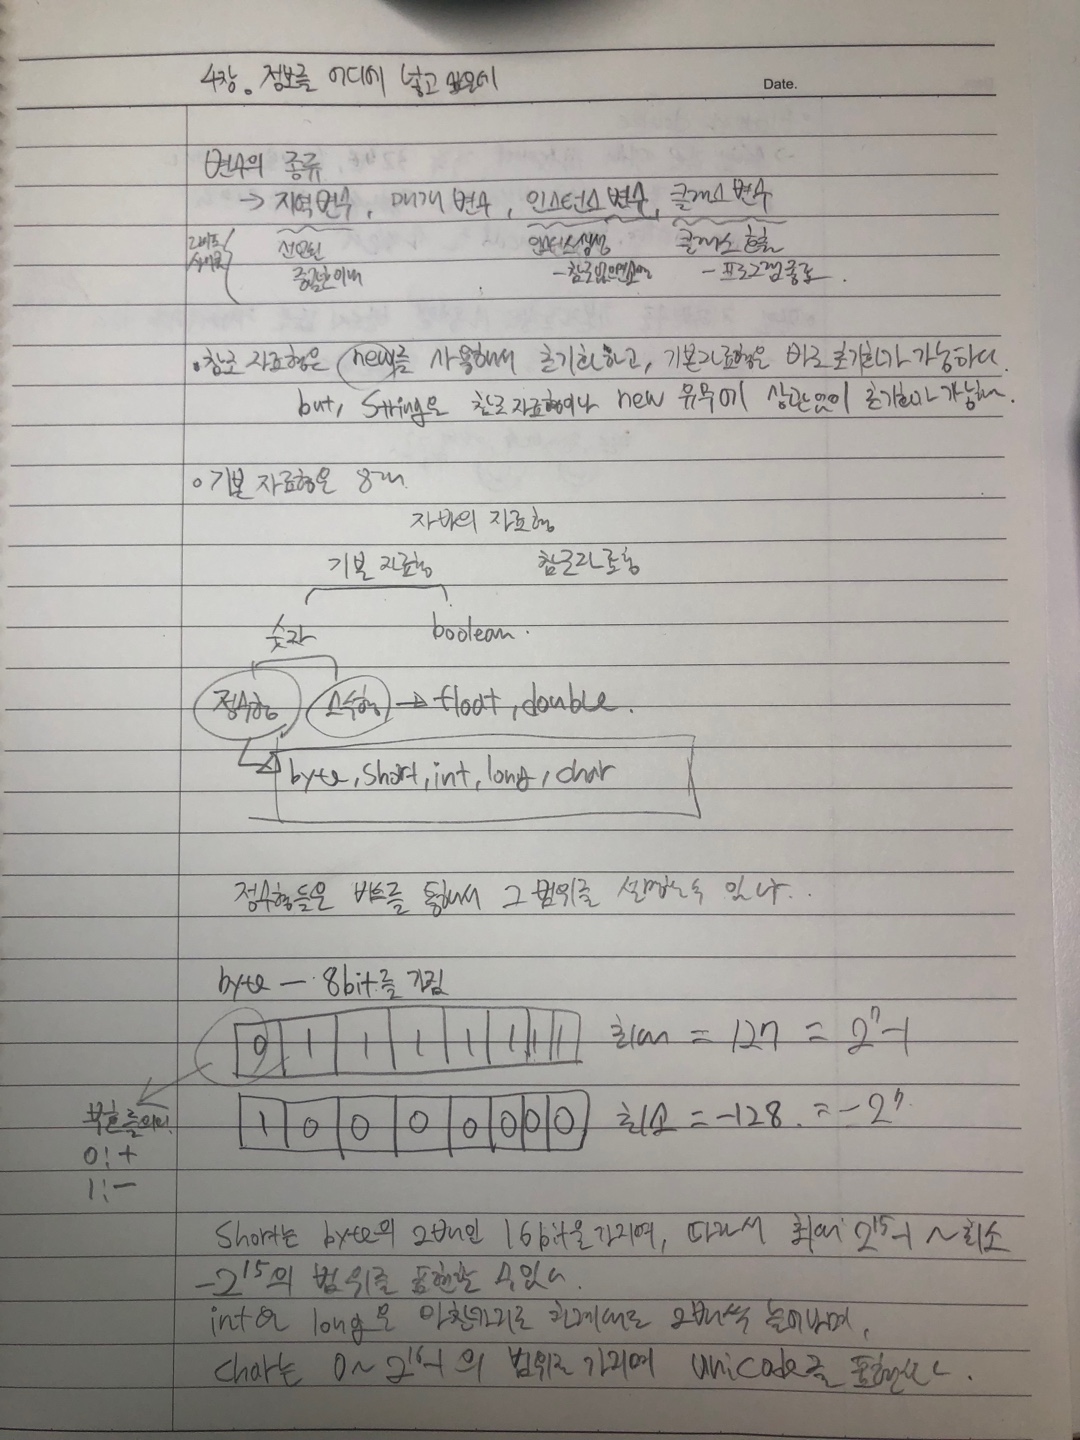 4장. 정보를 어디에 넣고 싶은데
Date.
변수의 종류
→ 지역변수, 매개변수, 인스턴스 변수, 클래스 변수
선언된 인스턴스생성 클래스 호출
중괄호이내 - 참조없으면소멸 - 프로그램종료.
• 참조 자료형은 new를 사용해서 초기화하고, 기본자료형은 바로 초기화가 가능하다
but, String은 참조자료형이나 new 유무에 상관없이 초기화가 가능해.
• 기본 자료형은 8개
자바의 자료형
기본 자료형 참조자료형
숫자 boolean.
정수형 소수형 → float, double.
byte, short, int, long, char
정수형들은 비트를 통해서 그 범위를 설명할수 있다..
byte - 8bit를 가짐
0 1 1 1 1 1 1 1 최대 = 127 = 2⁷-1
1 0 0 0 0 0 0 0 최소 = -128. = -2⁷.
부호를의미.
0:+
1:-
short는 byte의 2배인 16bit을 가지며, 따라서 최대 2¹⁵-1 ~ 최소
-2¹⁵의 범위를 표현할 수있다.
int와 long은 마찬가지로 차례대로 2배씩 늘어나며,
char는 0~2¹⁶-1의 범위를 가지며 unicode를 표현한다.